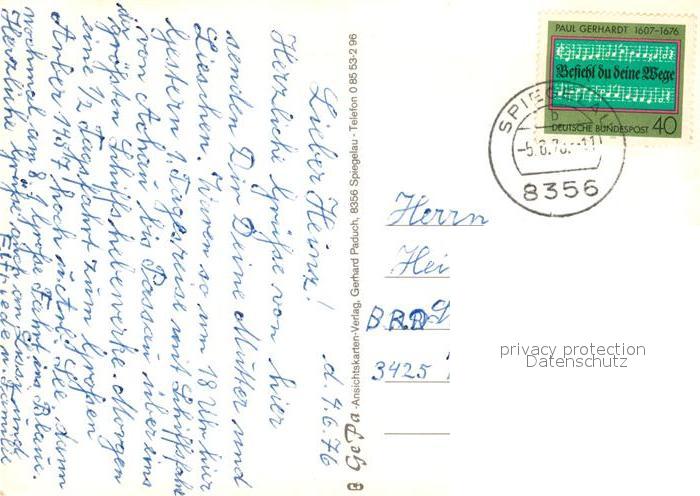 PAUL GERHARDT 1607-1676
Befiehl du deine Wege
DEUTSCHE BUNDESPOST 40
SPIEGELAU
b
-5.6.76.-11
8356
d. 4.6.76
Lieber Heinz!
Herzliche Grüße von hier
senden Dir Deine Mutter und
Lieschen. Waren so um 18 Uhr hier
Gestern 1. Tagesreise mit Schiffsfahrt
von Achau bis Passau über eins
der größten Schiffshebewerke. Morgen
eine 1/2 Tagesfahrt zum Großen
Arber 1457 hoch u. dann
nochmal am 8. Große Fahrt ins Blaue.
Herzliche Grüße auch an
Elfriede u. Familie
GePa Ansichtskarten-Verlag, Gerhard Paduch, 8356 Spiegelau - Telefon 0 85 53-2 96
Herrn
Hei
BRD
3425
privacy protection
Datenschutz